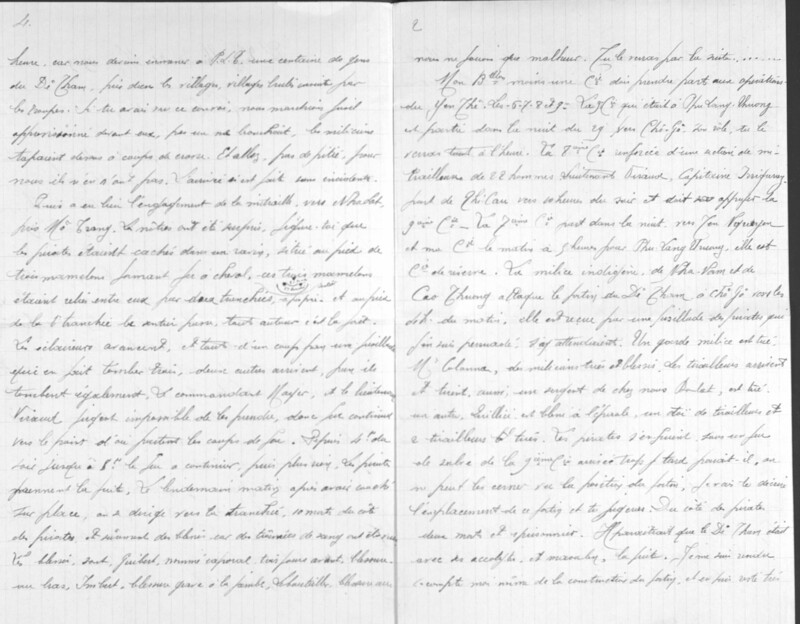 4.
heure, car nous devions envoyer à P.L.T. une centaine de gens
du Dê Tham, pris dans les villages, villages brûlés ensuite par
les troupes. Si tu avais vu ce convoi, nous marchions fusil
approvisionné devant eux, pas un ne bronchait, les miliciens
tapaient dessus à coups de crosse. Et allez, pas de pitié, pour
nous ils n'en n'ont pas. L'arrivée s'est fait sans incidents.
Puis a eu lieu l'engagement de la mitraille, vers
près Mô Trang. Les nôtres ont été surpris, figure-toi que
les pirates étaient cachés dans un ravin, situé au pied de
trois mamelons formant fer à cheval, ces trois mamelons
étaient reliés entre eux par des tranchées, et au pied
de la tranchée le sentier passe, tout autour c'est la forêt.
Les éclaireurs avancent, et tout d'un coup une fusillade
qui en fait tomber trois, deux autres arrivent, puis ils
tombent également. Le commandant Mayer, et le lieutenant
Viraud jugent impossible de les prendre, donc on continue
vers le point d'où partent les coups de feu. Depuis 4h du
soir jusqu'à 8h le feu a continué, puis plus rien. Les pirates
prennent la fuite. Le lendemain matin après avoir couché
sur place, on se dirige vers la tranchée, 10 morts du côté
des pirates, et sûrement des blessés car des traînées de sang ont été vues
Les blessés sont, Guibert, nommé caporal, toujours avant, blessure
au bras, Imbert, blessure grave à la jambe, blessure au
2
nous ne faisions que malheur. Tu le verras par la suite......
Mon Btllon moins une Cie doit prendre part aux opérations
du Yen Thé. Les 6-7-8 et 9e. La 9e Cie qui était à Phu Lang Thuong
est partie dans la nuit du 29 vers Chô-Gô, son rôle, tu le
verras tout à l'heure. La 8ème Cie renforcée d'une section de mi-
trailleuses de 22 hommes, lieutenant Viraud, Capitaine
part de Thi Cau vers 10 heures du soir et doit appuyer la
9ème Cie - La 7ème Cie part dans la nuit vers Yen
et ma Cie le matin à 5 heures pour Phu Lang Thuong, elle est
Cie de réserve. La milice indigène, de Nha-Nam et de
Cao Thuong attaque le fortin du Dê Tham, à Chô Gô vers les
du matin, elle est reçue par une fusillade des pirates qui
j'en suis persuadé, s'y attendaient. Un garde milice est tué
Mr Colonna, des miliciens tués et blessés. Les tirailleurs arrivent
et tirent, aussi, un sergent de chez nous Boulat, est tué
un autre, est blessé à l'épaule, un de tirailleurs et
2 tirailleurs tués. Les pirates s'enfuient, sous un feu
de salve de la 9ème Cie arrivée trop tard paraît-il, on
ne peut les cerner vu la position du fortin, je vais te décrire
l'emplacement de ce fortin et tu jugeras. Du côté des pirates
deux morts et 1 prisonnier. Il paraîtrait que le Dê Tham était
avec ses acolytes, et la fuite. Je me suis rendu
compte moi-même de la construction du fortin, et en suis resté très